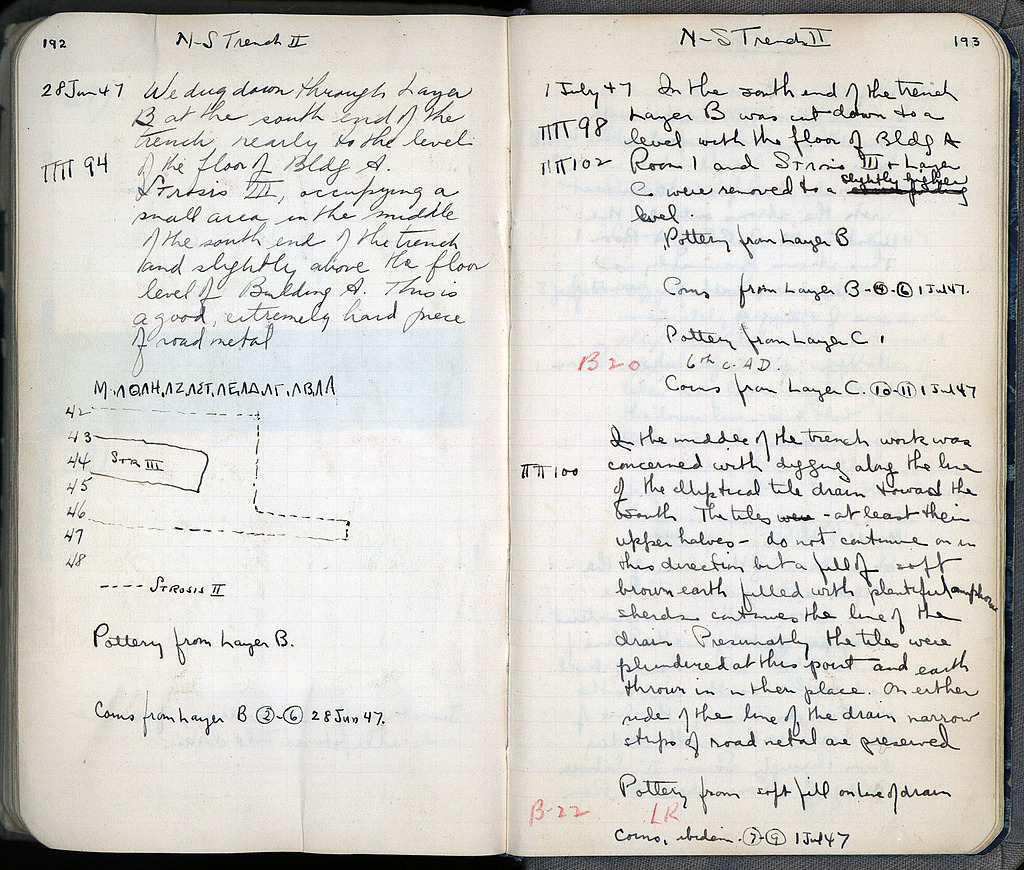 192
N-S Trench II
28 Jun 47 We dug down through Layer
B at the south end of the
trench, nearly to the level
ΠΠ 94 of the floor of Bldg A.
Strosis III, occupying a
small area in the middle
of the south end of the trench
and slightly above the floor
level of Building A. This is
a good, extremely hard piece
of road metal
42
43
44 Str III
45
46
47
48
---- Strosis II
Pottery from Layer B.
Coins from Layer B ②-⑥ 28 Jun 47.
N-S Trench II
193
1 July 47 In the south end of the trench
Layer B was cut down to a
ΠΠ 98 level with the floor of Bldg A
ΠΠ 102 Room 1 and Strosis III + Layer
C were removed to a slightly higher
level.
Pottery from Layer B
Coins from Layer B-④-⑥ 1 Jul 47.
Pottery from Layer C
B 20 6th c. A.D.
Coins from Layer C. ⑩-⑪ 1 Jul 47
In the middle of the trench work was
ΠΠ 100 concerned with digging along the line
of the elliptical tile drain toward the
south The tiles were - at least their
upper halves - do not continue on in
this direction but a fill of soft
brown earth filled with plentiful amphora
sherds continues the line of the
drain Presumably the tiles were
plundered at this point and earth
thrown in in their place. On either
side of the line of the drain narrow
strips of road metal are preserved
Pottery from soft fill on line of drain
B-22 LR
Coins, ibidem. ⑦-⑨ 1 Jul 47